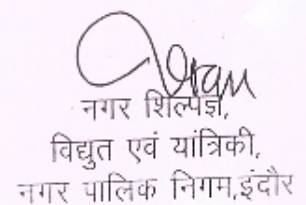 नगर शिल्पज्ञ,
विद्युत एवं यांत्रिकी,
नगर पालिक निगम,इंदौर